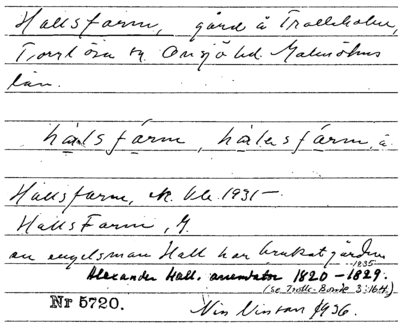 Hallsfarm, gård å Trolleholm,
Torrlösa sn. Onsjö hd. Malmöhus
län.
hálsfárm, hálesfárm, à
Hallsfarm, Kbl. 1931–
Halls Farm, G.
en engelsman Hall har brukat gården
1835
Alexander Hall, arrendator 1820–1829.
(se Trolle-Bonde 3:164.)
Nr 5720.
1936.